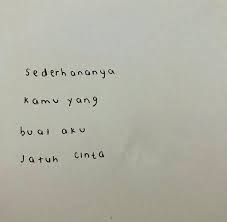 sederhananya
kamu yang
buat aku
Jatuh cinta